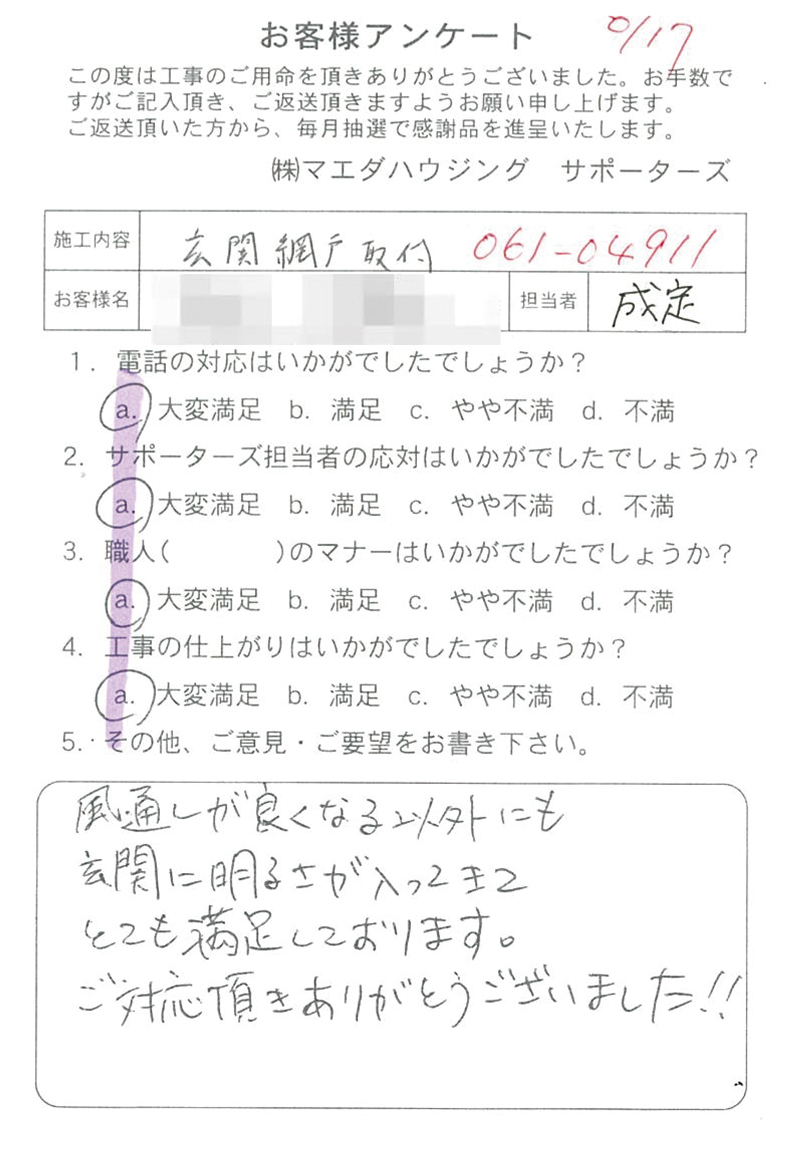 お客様アンケート
この度は工事のご用命を頂きありがとうございました。お手数で
すがご記入頂き、ご返送頂きますようお願い申し上げます。
ご返送頂いた方から、毎月抽選で感謝品を進呈いたします。
㈱マエダハウジング　サポーターズ
施工内容 玄関網戸取付 061-04911
お客様名 担当者 成定
1. 電話の対応はいかがでしたでしょうか？
a. 大変満足 b. 満足 c. やや不満 d. 不満
2. サポーターズ担当者の応対はいかがでしたでしょうか？
a. 大変満足 b. 満足 c. やや不満 d. 不満
3. 職人(　　　　)のマナーはいかがでしたでしょうか？
a. 大変満足 b. 満足 c. やや不満 d. 不満
4. 工事の仕上がりはいかがでしたでしょうか？
a. 大変満足 b. 満足 c. やや不満 d. 不満
5. その他、ご意見・ご要望をお書き下さい。
風通しが良くなる以外にも
玄関に明るさが入ってきて
とても満足しております。
ご対応頂きありがとうございました!!